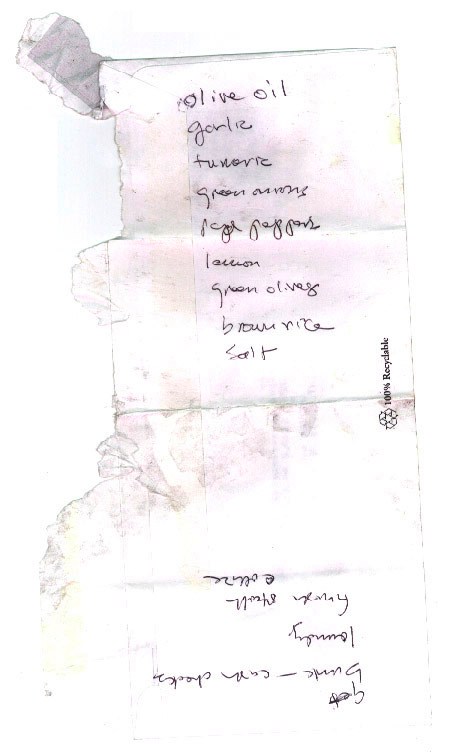 olive oil
garlic
tumeric
green onions
peppers
lemon
green olives
brown rice
salt
100% Recyclable
get
bank — cash checks
laundry